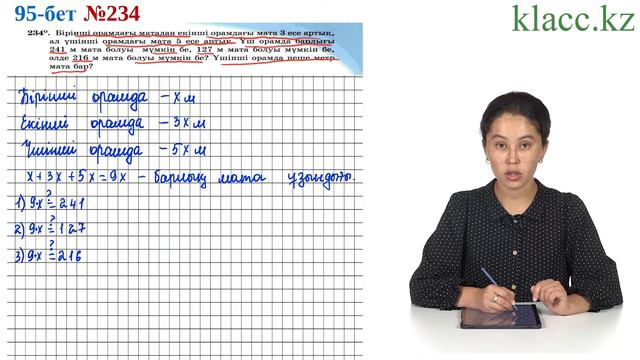 95-бет №234
klacc.kz
234°. Бірінші орамдағы матадан екінші орамдағы мата 3 есе артық,
ал үшінші орамдағы мата 5 есе артық. Үш орамда барлығы
241 м мата болуы мүмкін бе, 127 м мата болуы мүмкін бе,
әлде 216 м мата болуы мүмкін бе? Үшінші орамда неше метр
мата бар?
Бірінші орамда – х м
Екінші орамда – 3х м
Үшінші орамда – 5х м
х+3х+5х=9х – барлық мата ұзындығы.
1) 9·х ?= 241
2) 9·х ?= 127
3) 9·х ?= 216